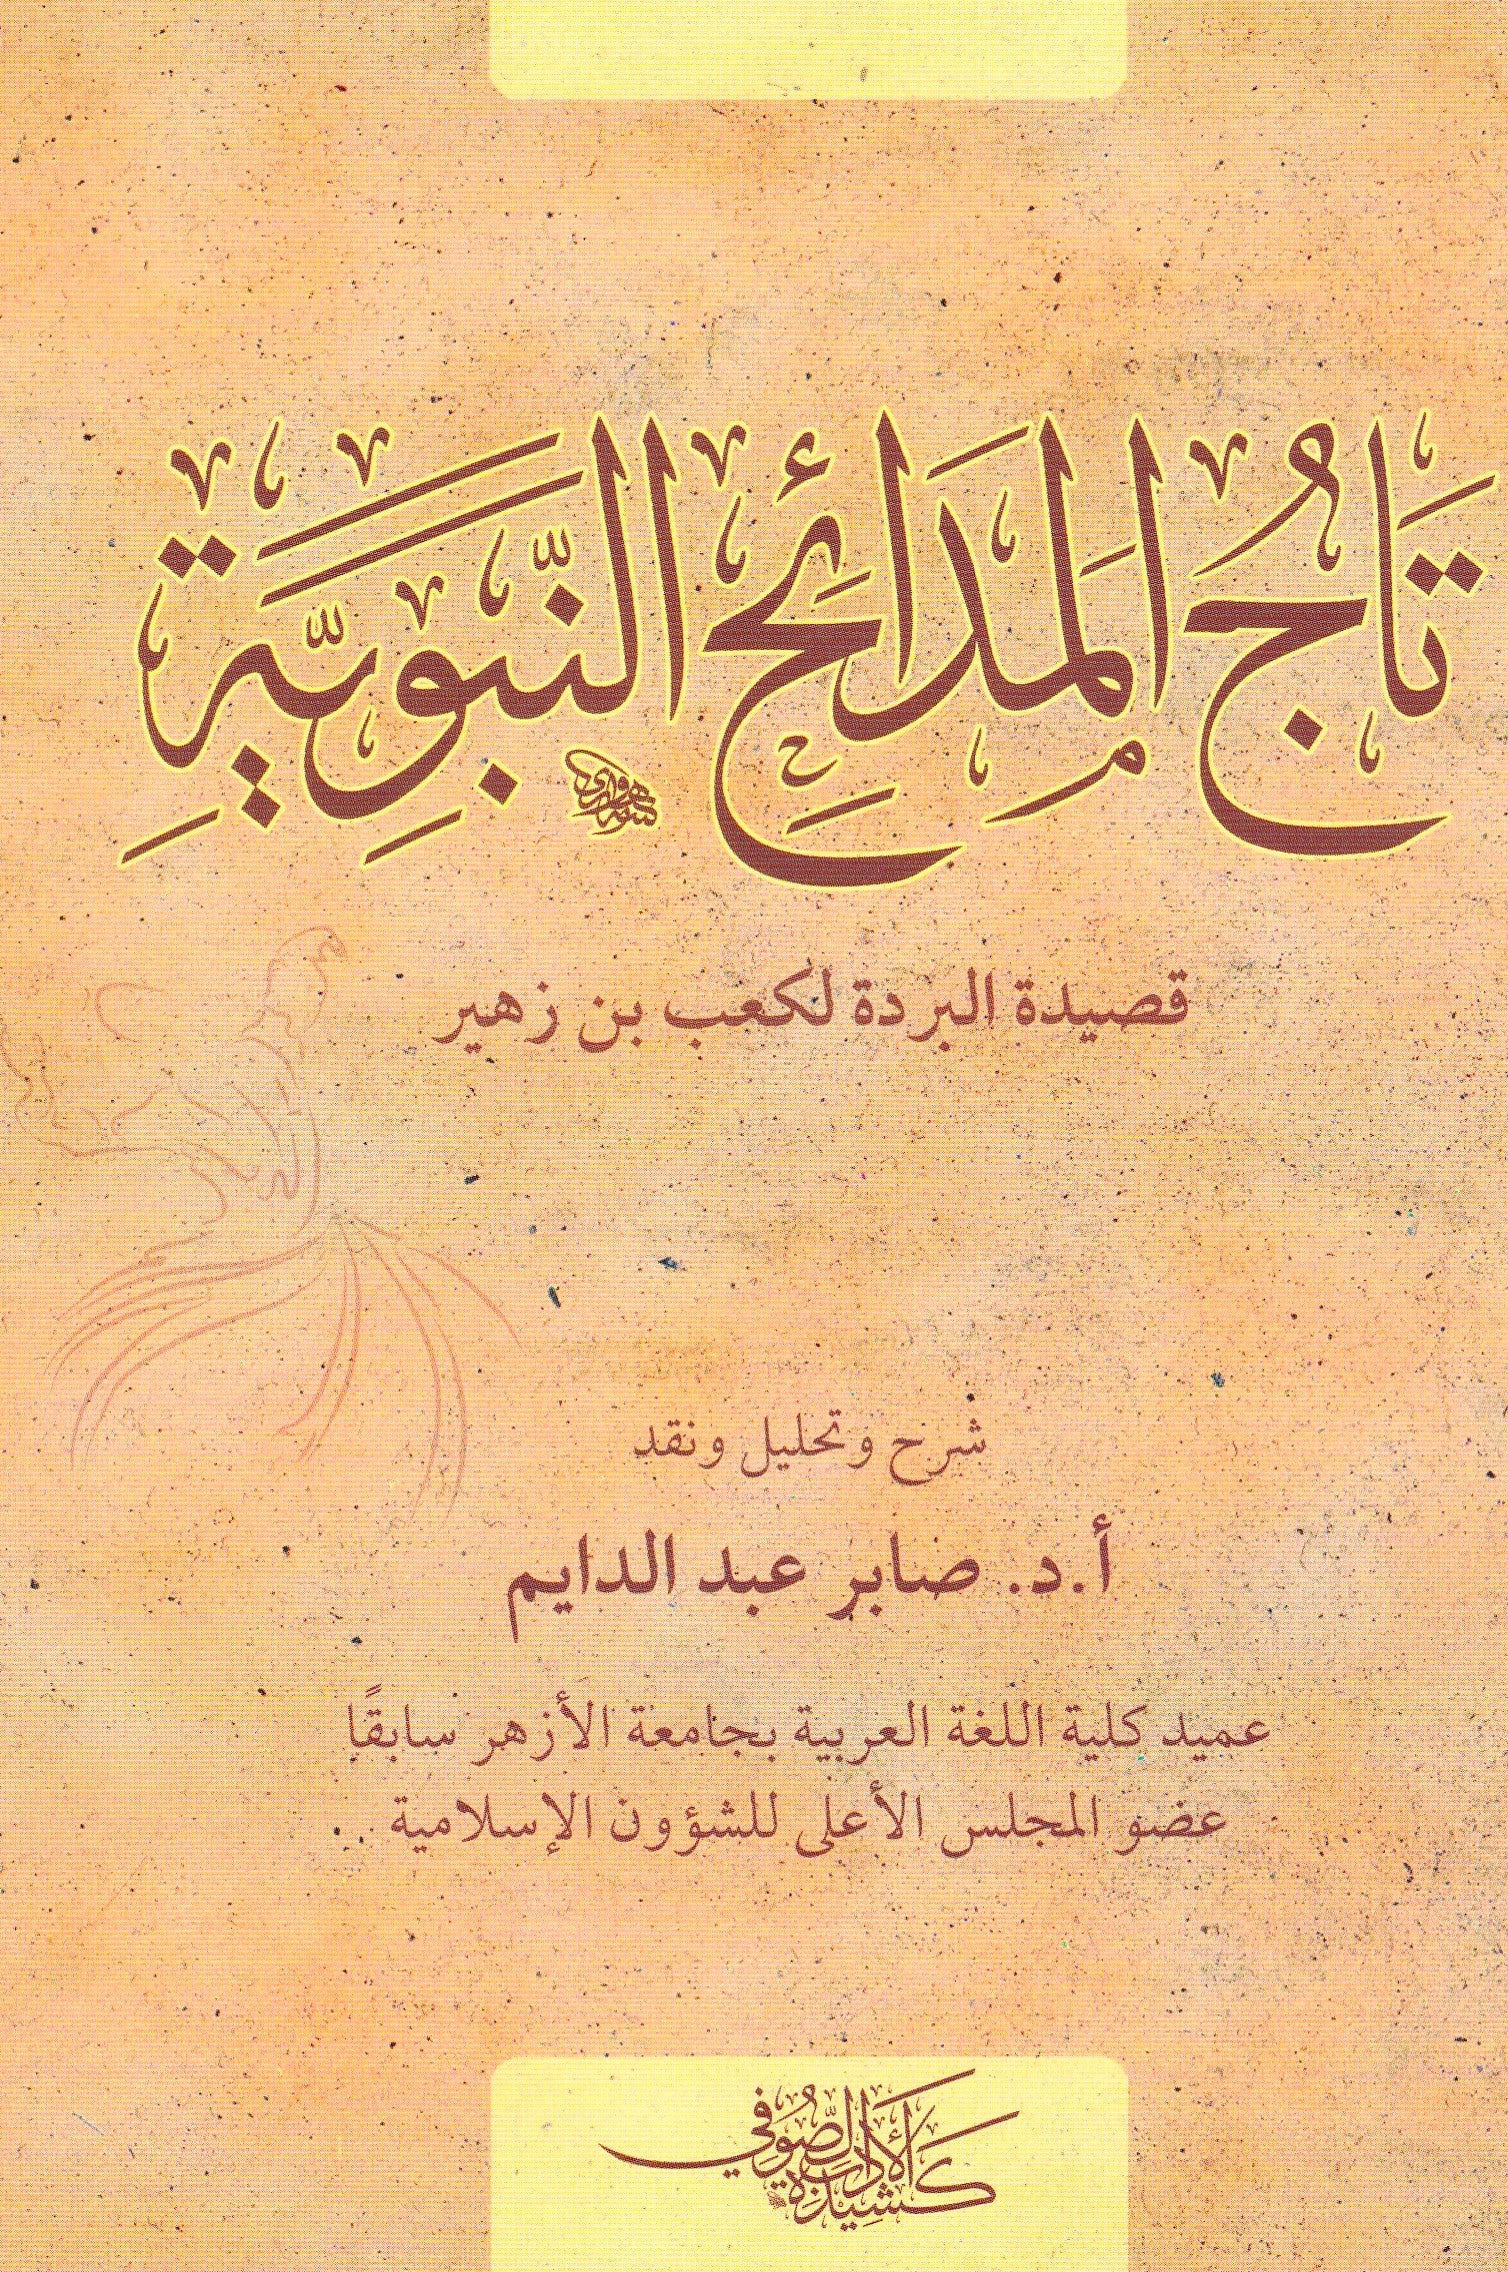 تَاجُ المَدَائِحِ النَّبَوِيَّةِ
قصيدة البردة لكعب بن زهير
شرح وتحليل ونقد
أ.د. صابر عبد الدايم
عميد كلية اللغة العربية بجامعة الأزهر سابقًا
عضو المجلس الأعلى للشؤون الإسلامية
كشيدة
للأدب الصوفي